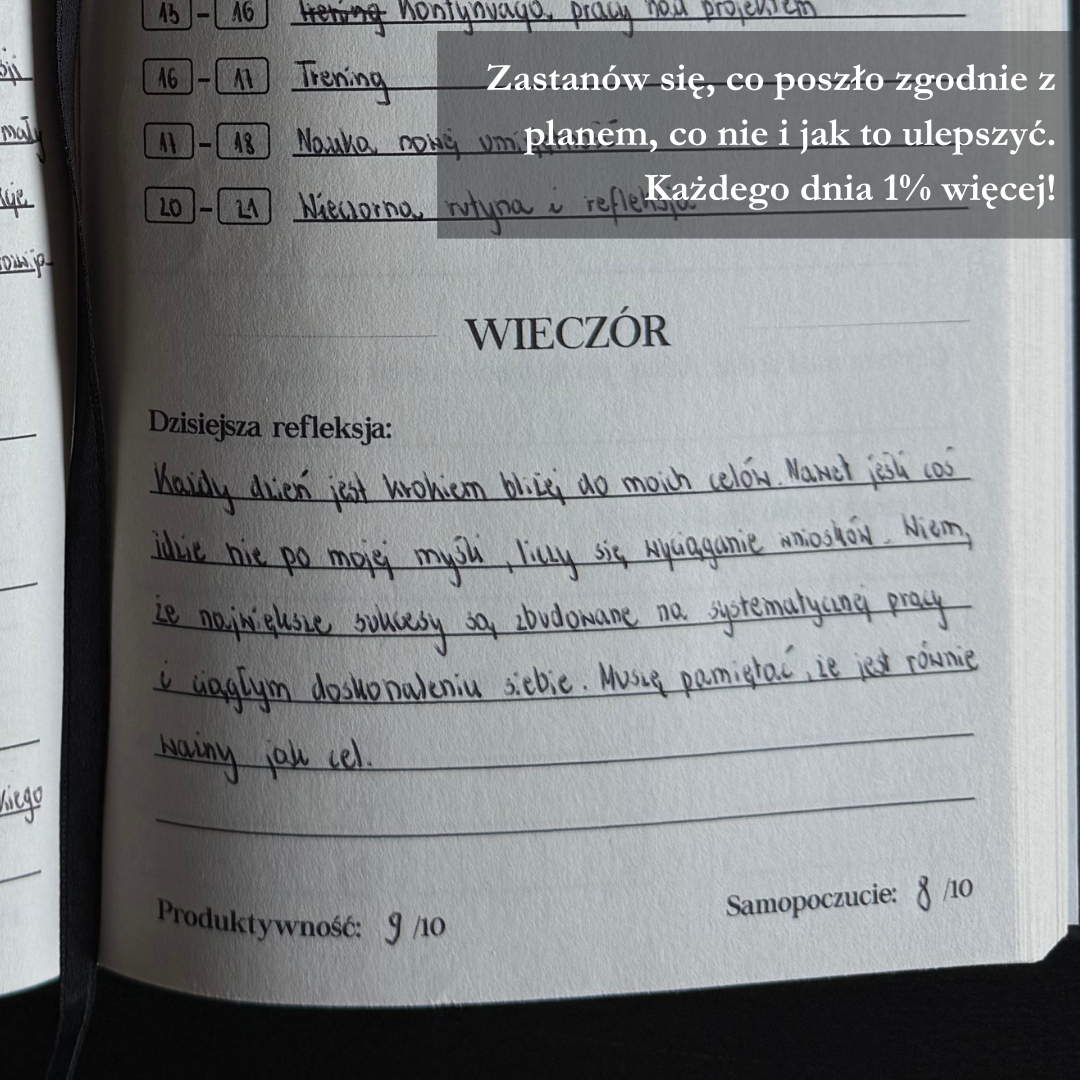 15 - 16 trening Kontynuacja pracy nad projektem
16 - 17 Trening
17 - 18 Nauka nowej umiejętności
20 - 21 Wieczorna rutyna i refleksja
Zastanów się, co poszło zgodnie z
planem, co nie i jak to ulepszyć.
Każdego dnia 1% więcej!
mały
kiego
WIECZÓR
Dzisiejsza refleksja:
Każdy dzień jest krokiem bliżej do moich celów. Nawet jeśli coś
idzie nie po mojej myśli, liczy się wyciąganie wniosków. Wiem,
że największe sukcesy są zbudowane na systematycznej pracy
i ciągłym doskonaleniu siebie. Muszę pamiętać, że jest równie
ważny jak cel.
Produktywność: 9 /10
Samopoczucie: 8 /10